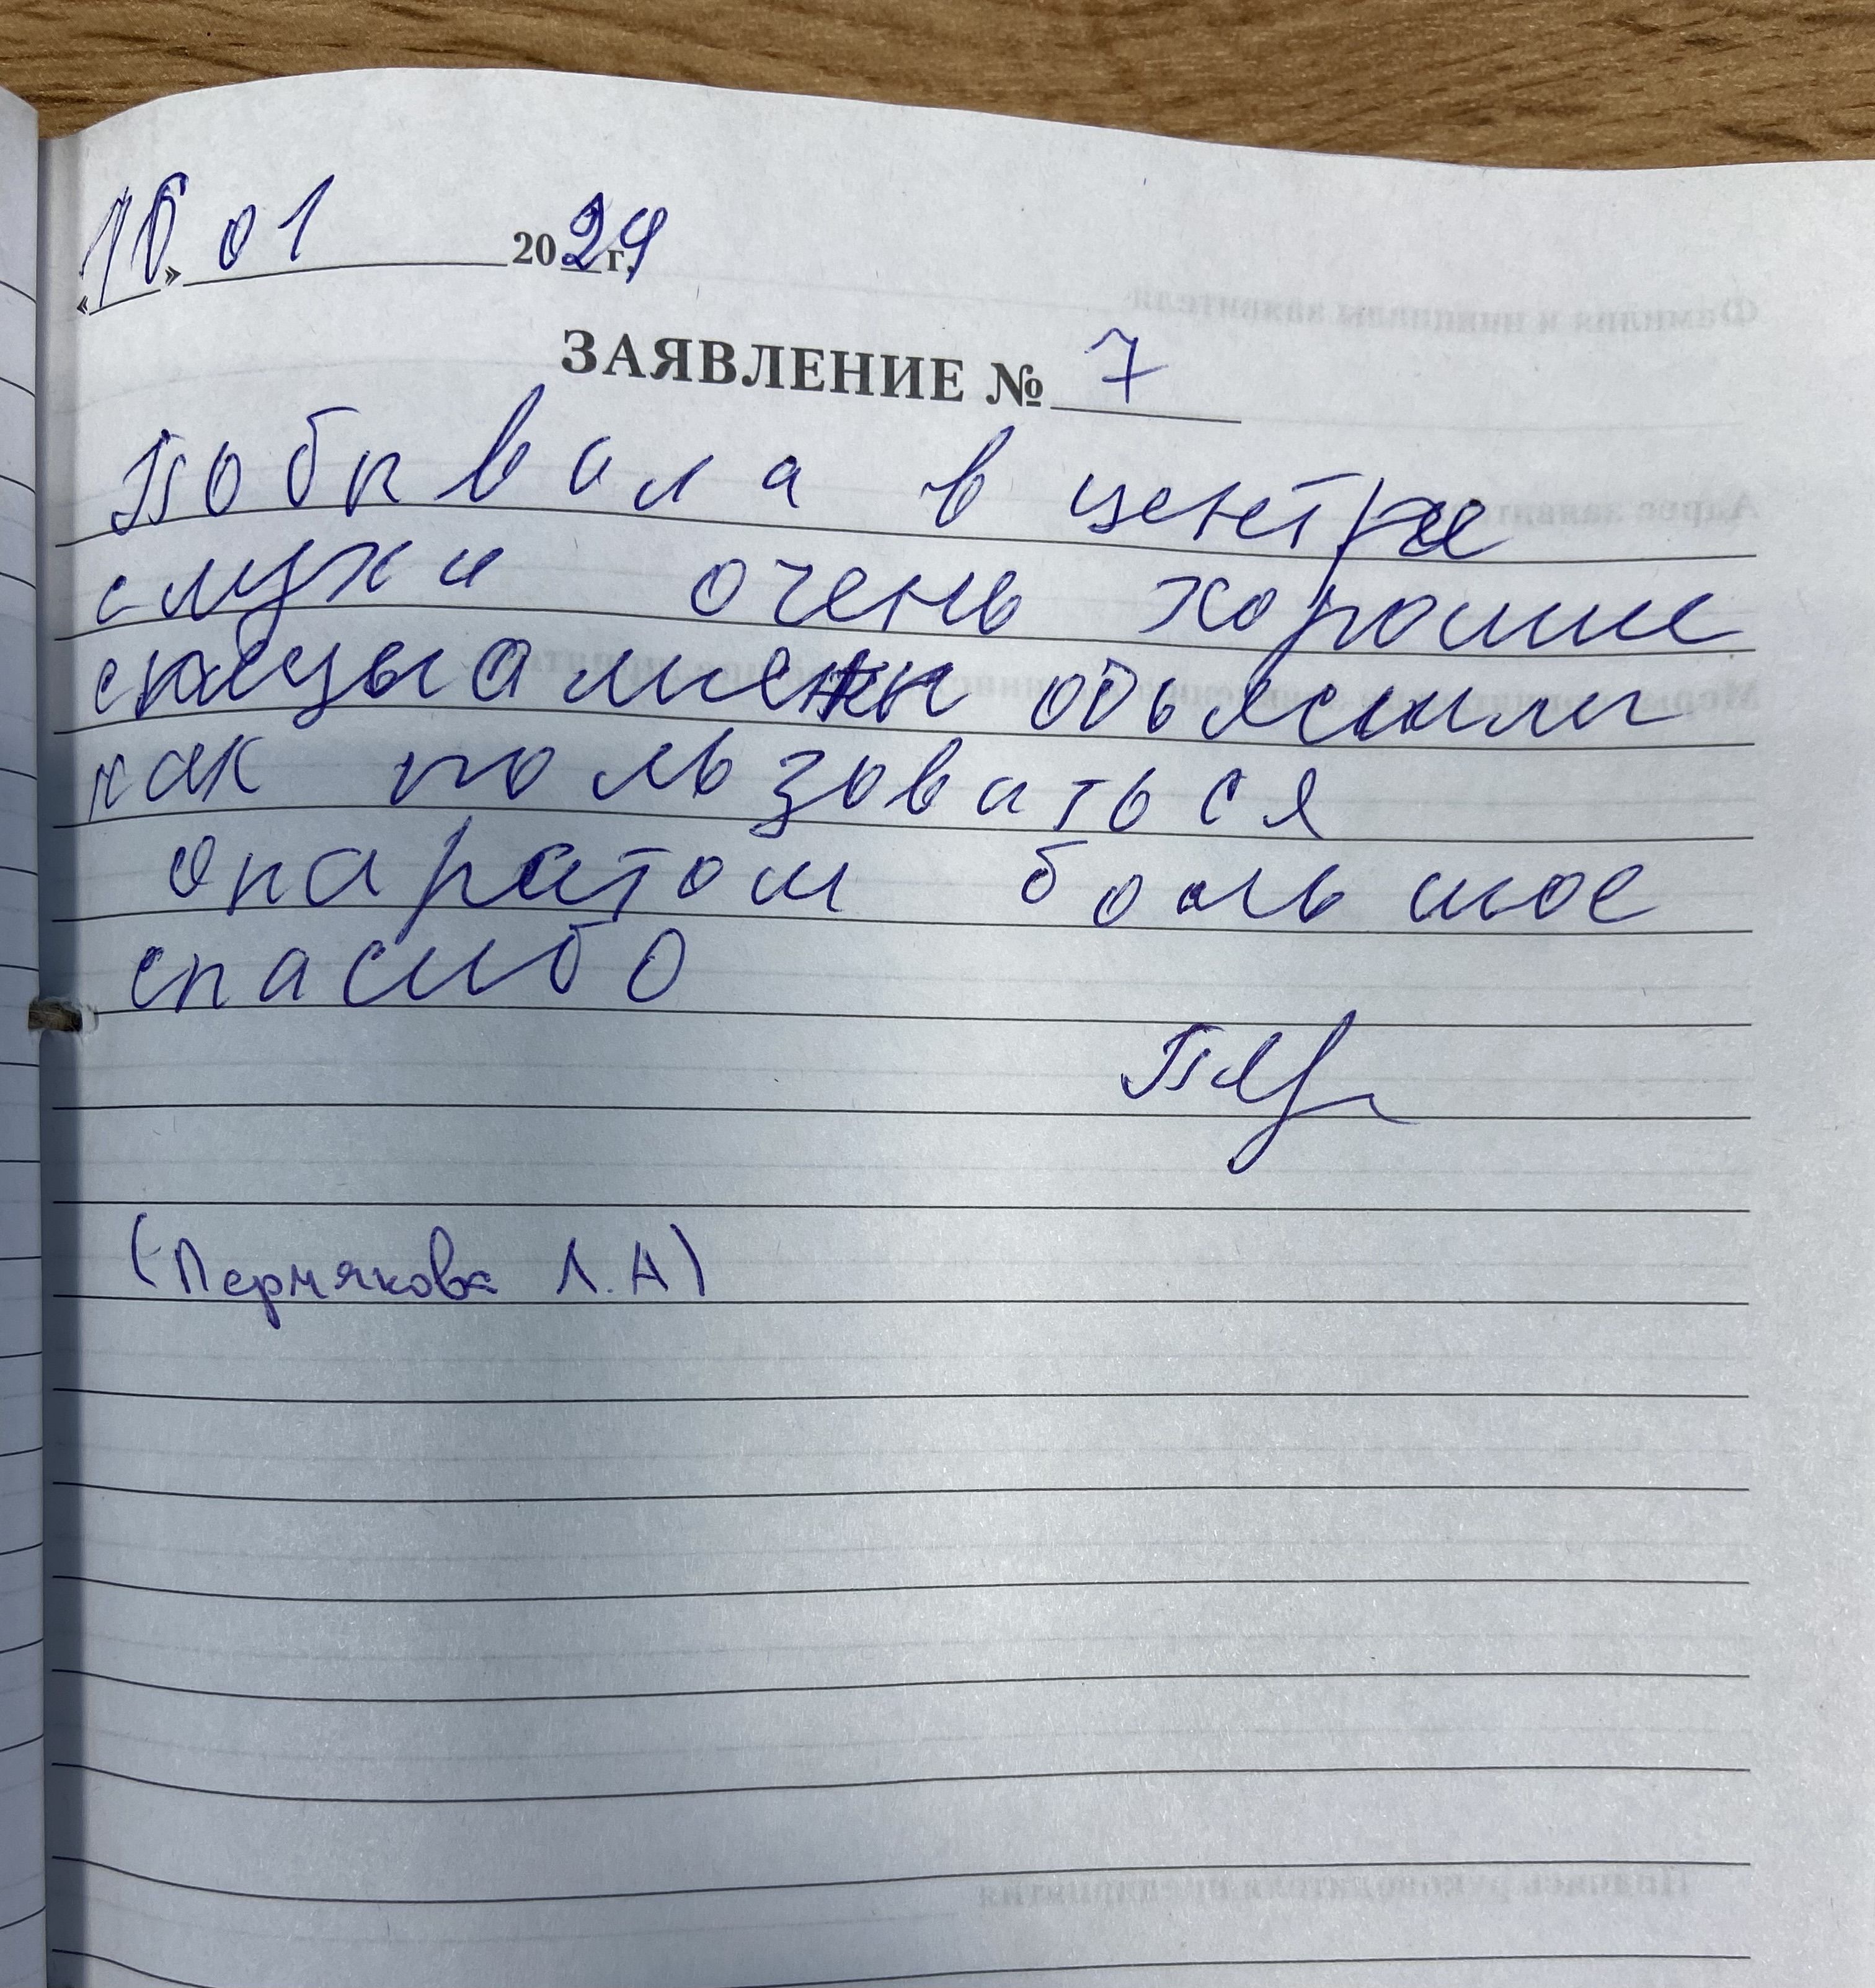 «16» 01 2024 г.
ЗАЯВЛЕНИЕ № 7
Побывала в центре
слуха очень хорошие
спецыалисты объяснили
как пользоваться
опаратом большое
спасибо
(Пермякова Л.А)